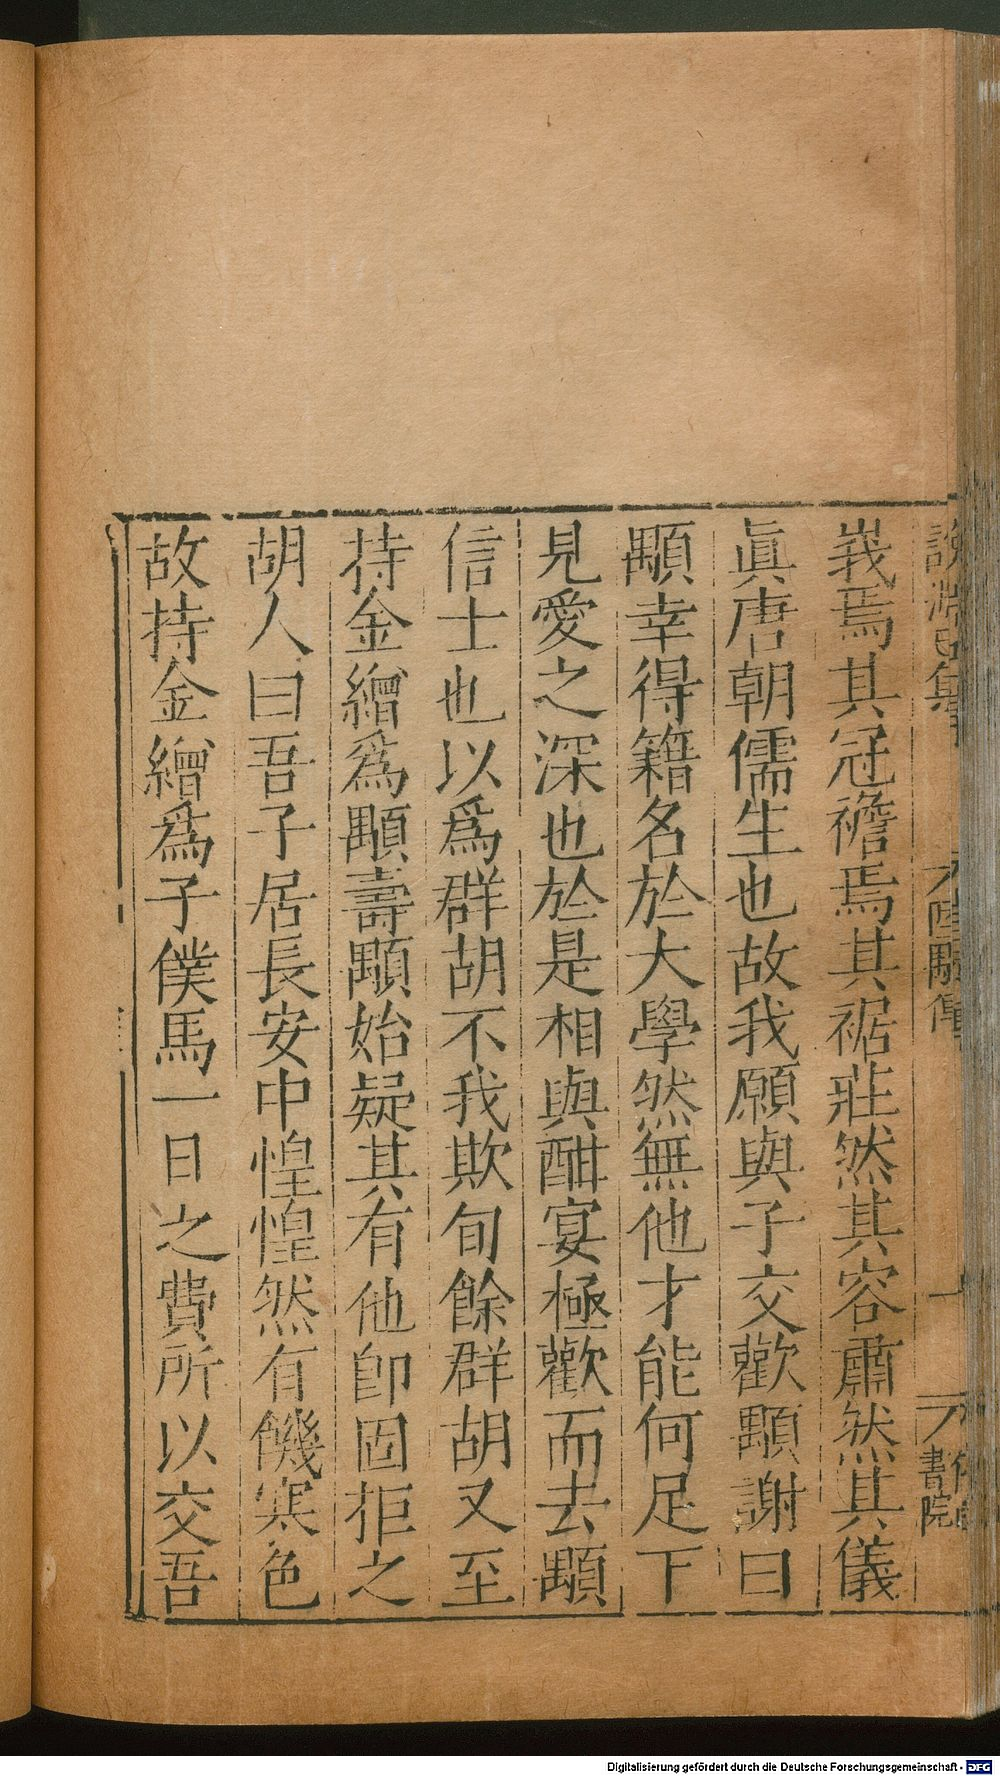 峩焉其冠襜焉其裾莊然其容肅然其儀
眞唐朝儒生也故我願與子交歡顒謝曰
顒幸得籍名於大學然無他才能何足下
見愛之深也於是相與酣宴極歡而去顒
信士也以爲群胡不我欺旬餘群胡又至
持金繒爲顒壽顒始疑其有他卽固拒之
胡人曰吾子居長安中惶惶然有饑寒色
故持金繒爲子僕馬一日之費所以交吾
書院
Digitalisierung gefördert durch die Deutsche Forschungsgemeinschaft - DFG